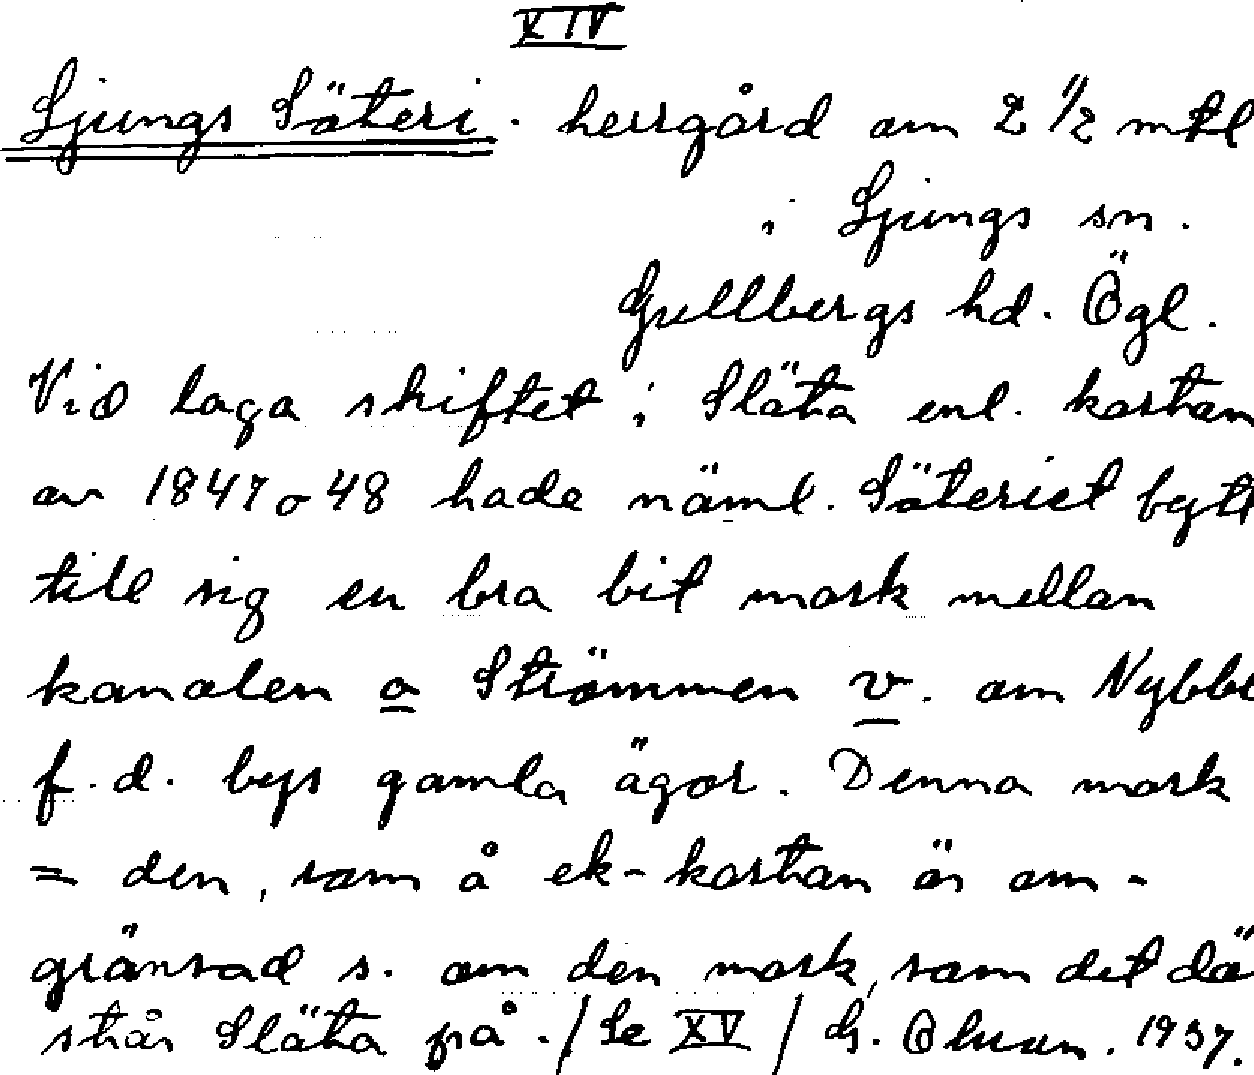 XIV
Ljungs Säteri. herrgård om 2 1/2 mtl
i Ljungs sn.
Gullbergs hd. Ögl.
Vid laga skiftet i Släta enl. kartan
av 1847 o 48 hade näml. Säteriet bytt
till sig en bra bit mark mellan
kanalen o Strömmen v. om Nybble
f.d. bys gamla ägor. Denna mark
= den, som å ek-kartan är om-
gränsad s. om den mark, som det dä
står Släta på. / Se XV / G. 1937.